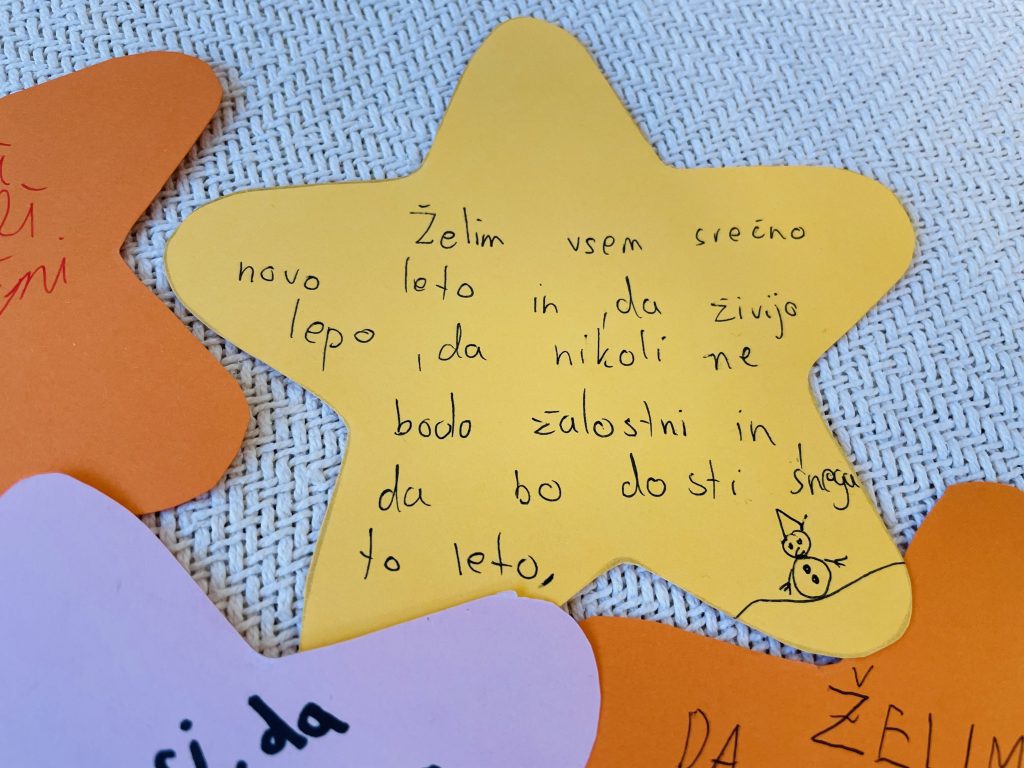 Želim vsem srečno
novo leto in ,da živijo
lepo ,da nikoli ne
bodo žalostni in
da bo dosti snega
to leto,
da
DA ŽELIM